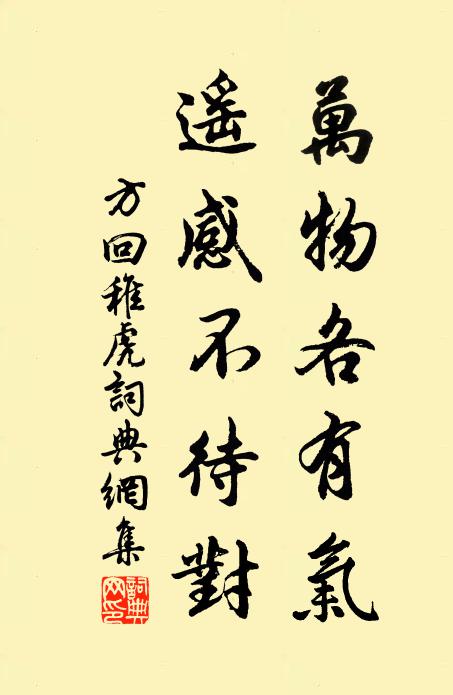 萬物各有氣
遥感不待對
方回稚虎詞典網集
詞典网印